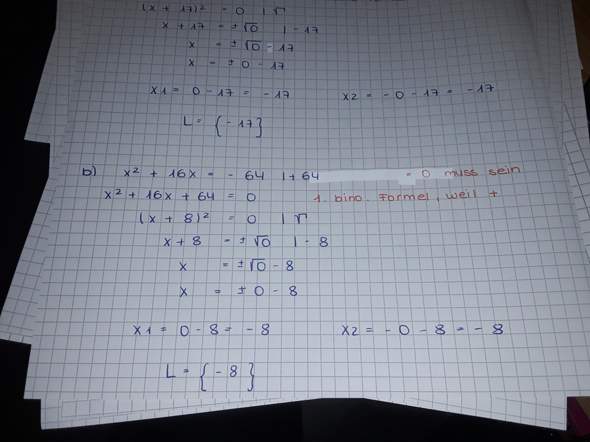 (x + 17)² = 0 | √
x + 17 = ±√0 | - 17
x = ±√0 - 17
x = ± 0 - 17
x1 = 0 - 17 = - 17 x2 = - 0 - 17 = - 17
L = {- 17}
b) x² + 16x = - 64 | + 64 = 0 muss sein
x² + 16x + 64 = 0 1. bino. Formel, weil +
(x + 8)² = 0 | √
x + 8 = ±√0 | - 8
x = ±√0 - 8
x = ± 0 - 8
x1 = 0 - 8 = - 8 x2 = - 0 - 8 = - 8
L = {- 8}